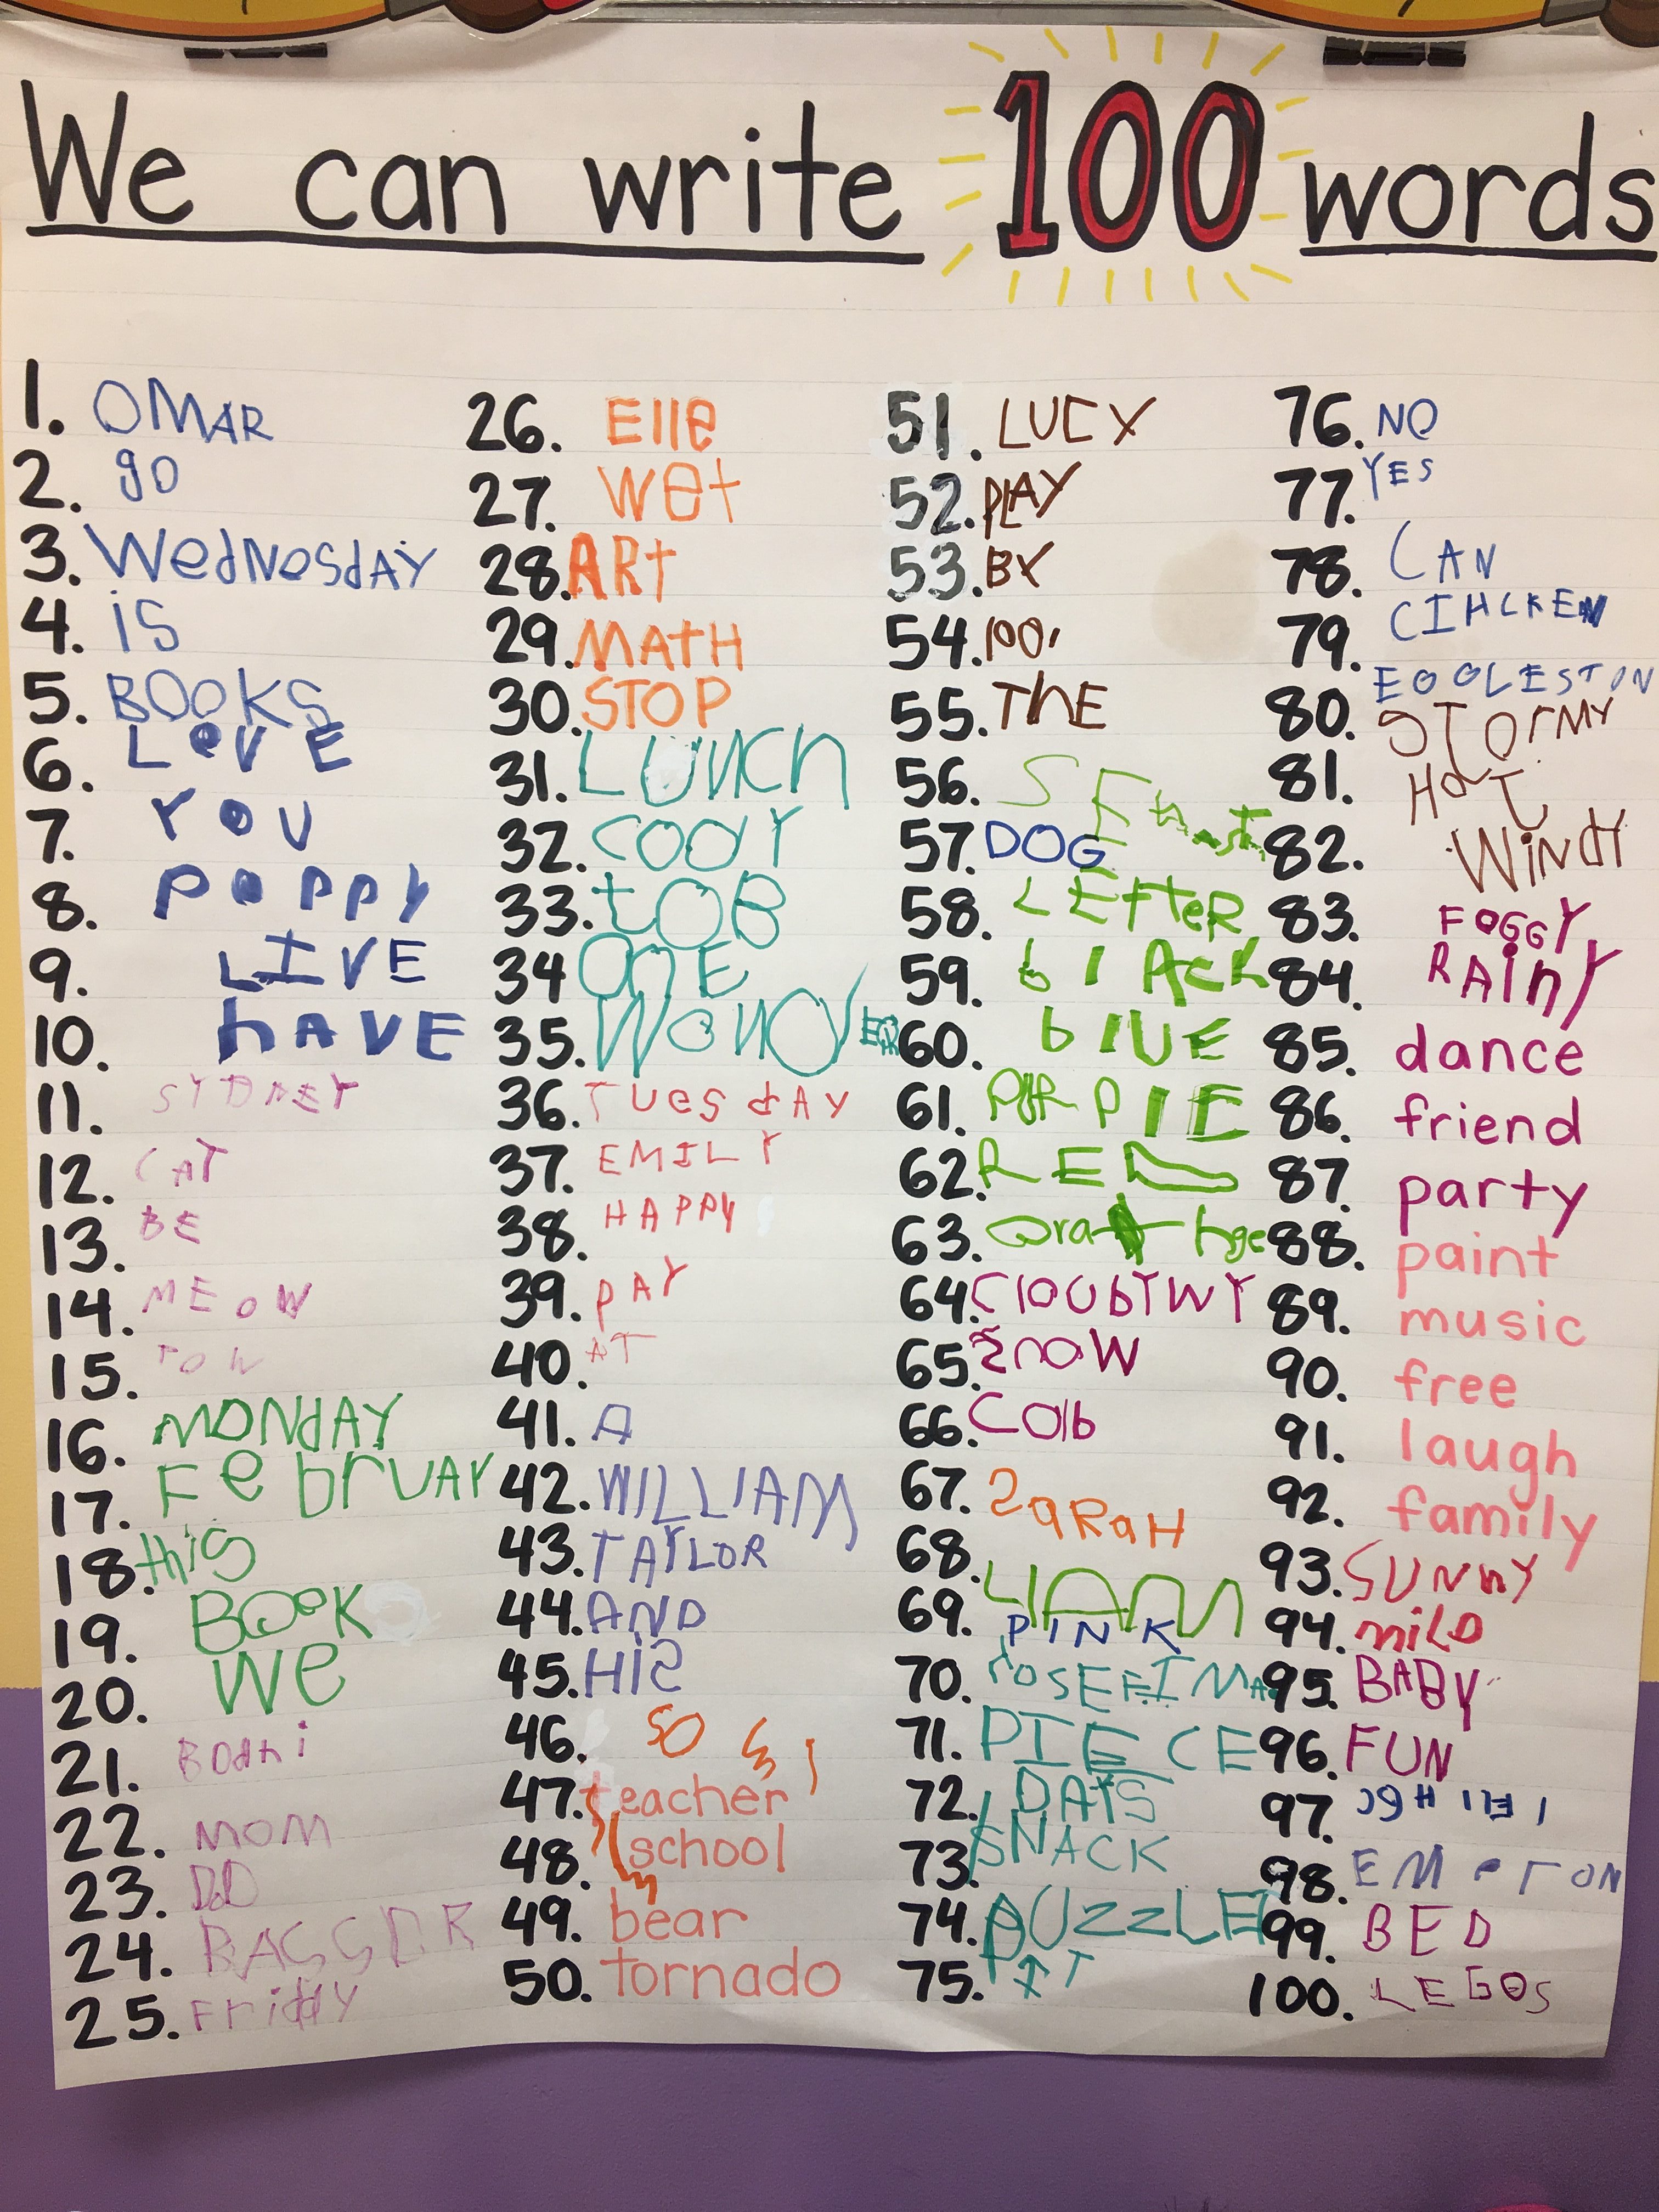 We can write 100 words
1. OMAR
2. go
3. WedNesdAY
4. is
5. BOOKS
6. LOVE
7. YOU
8. POPPY
9. LIVE
10. hAVE
11. SYDNEY
12. CAT
13. BE
14. MEOW
15. TOW
16. MONdAY
17. FebrUAY
18. this
19. BOOK
20. We
21. BOdhi
22. MOM
23. DaD
24.
25. Friddy
26. Elle
27. wet
28. ARt
29. MAtH
30. STOP
31. LUNCh
32. CODY
33. tOB
34 OnE
35.
36. TuesdAy
37. EMILY
38. HAPPY
39. PAY
40. AT
41. A
42. WILLIAM
43. TAYLOR
44. AND
45. HiS
46. so
47. teacher
48. school
49. bear
50. tornado
51. LUCY
52. PLAY
53. BY
54. 100
55. ThE
56.
57. DOG
58. LEtteR
59. blACk
60. blUE
61. PURPlE
62. RED
63.
64.
65. SnoW
66. Colb
67. SaRaH
68. LIAM
69. PINK
70. JOSEFINA
71. PIECE
72. DAYS
73. SNACK
74. PUzzLE
75. PIT
76. NO
77. YES
78. CAN
79. CIHCKEN
80. EGGLESTON
81. STOrMY
82. HOT
WiNdY
83. FOGGY
84. RAinY
85. dance
86. friend
87. party
88. paint
89. music
90. free
91. laugh
92. family
93. SUNNY
94. MiLD
95. BABY
96. FUN
97.
98.
99. BED
100. LEGOS